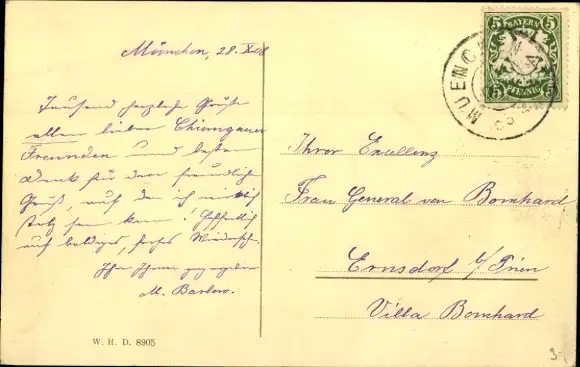 München, 28. X 08
Tausend herzliche Grüße
allen lieben Chiemgauer
Freunden und besten
Dank für den freundliche
Gruß, auf den ich wirklich
stolz sein kann! Hoffentlich
auf baldiges, frohes Wiedersehn.
Ihr Ihnen
M. Barlow.
W. H. D. 8905
BAYERN
5 5
PFENNIG
5 5
MUENCHEN
Ihrer Exellenz
Frau General von Bomhard
Ernsdorf b/Prien
Villa Bomhard